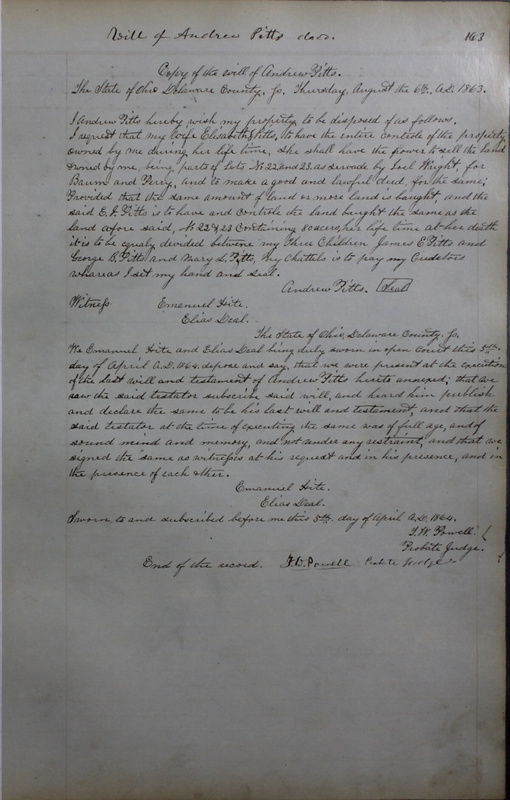 Will of Andrew Pitts decd. 163
Copy of the will of Andrew Pitts.
The State of Ohio Delaware County, ss. Thursday, August the 6th A.D. 1863.
I Andrew Pitts hereby wish my property to be disposed of as follows.
I request that my Wife Elisabeth Pitts, to have the entire controle of the property
owned by me during her life time, she shall have the power to sell the land
owned by me, being parts of Lots No 22 and 23. as servade by Joel Wright, for
Baum and Perry, and to make a good and lawful deed, for the same;
Provided that the same amount of land or more land is baught, and the
said E. Pitts is to have and controle the land baught the same as the
land afore said, No 22 & 23 containing 80 acers, her life time at her death
it is to be equaly devided between my Three Children James E Pitts and
George B. Pitts and Mary L. Pitts, My Chattels is to pay my Creditors
whareas I set my hand and seal.
Andrew Pitts. Seal
Witness Emanuel Hite.
Elias Deal.
The State of Ohio, Delaware County, ss.
We Emanuel Hite and Elias Deal being duly sworn in open Court this 5th
day of April A.D. 1864. depose and say, that we were present at the execution
of the last will and testament of Andrew Pitts hereto annexed; that we
saw the said testator subscribe said will, and heard him publish
and declare the same to be his last will and testament, and that the
said testator at the time of executing the same was of full age, and of
sound mind and memory, and not under any restraint, and that we
signed the same as witnesses at his request and in his presence, and in
the presence of each other.
Emanuel Hite.
Elias Deal.
Sworn to and subscribed before me this 5th day of April A.D. 1864.
T. W. Powell.
Probate Judge.
End of the record. T. W. Powell Probate Judge